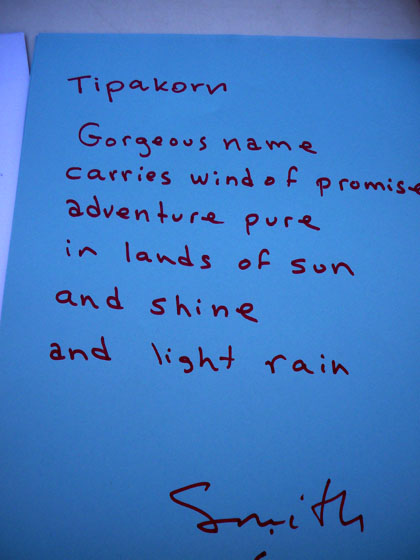 Tipakorn
Gorgeous name
carries wind of promise
adventure pure
in lands of sun
and shine
and light rain
Smith